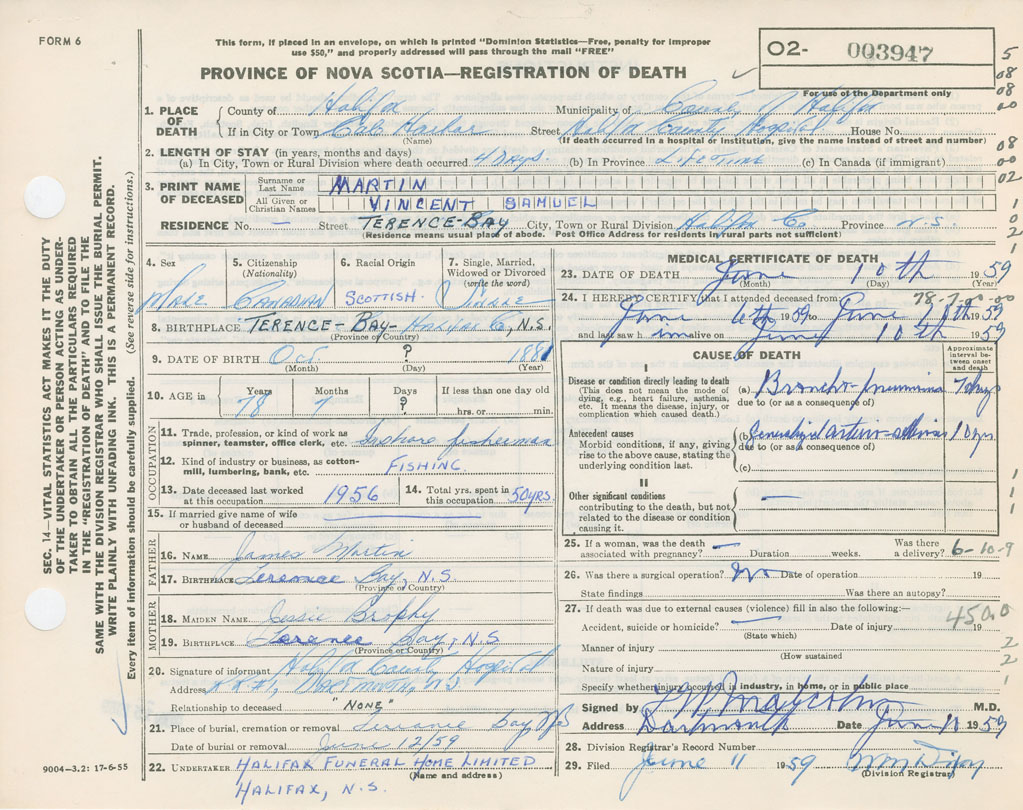 FORM 6
This form, if placed in an envelope, on which is printed "Dominion Statistics—Free, penalty for improper
use $50," and properly addressed will pass through the mail "FREE"
PROVINCE OF NOVA SCOTIA—REGISTRATION OF DEATH
O2- 003947
For use of the Department only
5
08
08
00
08
00
02
1
0
2
1
1
1
1
2
2
1
SEC. 14—VITAL STATISTICS ACT MAKES IT THE DUTY
OF THE UNDERTAKER OR PERSON ACTING AS UNDER-
TAKER TO OBTAIN ALL THE PARTICULARS REQUIRED
IN THE "REGISTRATION OF DEATH" AND TO FILE THE
SAME WITH THE DIVISION REGISTRAR WHO SHALL ISSUE THE BURIAL PERMIT.
WRITE PLAINLY WITH UNFADING INK. THIS IS A PERMANENT RECORD.
Every item of information should be carefully supplied. (See reverse side for instructions.)
1. PLACE OF DEATH
County of Halifax Municipality of County of Halifax
If in City or Town Cole Harbor Street Halifax County Hospital House No.
(Name) (If death occurred in a hospital or institution, give the name instead of street and number)
2. LENGTH OF STAY (in years, months and days)
(a) In City, Town or Rural Division where death occurred 4 DAYS. (b) In Province LIFE TIME (c) In Canada (if immigrant)
3. PRINT NAME OF DECEASED
Surname or Last Name MARTIN
All Given or Christian Names VINCENT SAMUEL
RESIDENCE No. — Street TERENCE-BAY City, Town or Rural Division Halifax Co Province N.S.
(Residence means usual place of abode. Post Office Address for residents in rural parts not sufficient)
4. Sex
MALE
5. Citizenship
(Nationality)
CANADIAN
6. Racial Origin
SCOTTISH
7. Single, Married,
Widowed or Divorced
(write the word)
8. BIRTHPLACE TERENCE-BAY- HALIFAX Co, N.S.
(Province or Country)
9. DATE OF BIRTH Oct ? 1881
(Month) (Day) (Year)
10. AGE in
Years 78
Months 7
Days ?
If less than one day old
hrs. or min.
OCCUPATION
11. Trade, profession, or kind of work as
spinner, teamster, office clerk, etc. Inshore fisherman
12. Kind of industry or business, as cotton-
mill, lumbering, bank, etc. FISHING
13. Date deceased last worked
at this occupation 1956
14. Total yrs. spent in
this occupation 50 YRS.
15. If married give name of wife
or husband of deceased
FATHER
16. NAME James Martin
17. BIRTHPLACE Terence Bay, N.S.
(Province or Country)
MOTHER
18. MAIDEN NAME Brophy
19. BIRTHPLACE Terence Bay, N.S
(Province or Country)
20. Signature of informant Halifax County Hospital
Address R R #1, DARTMOUTH, N S
Relationship to deceased "NONE"
21. Place of burial, cremation or removal Terence Bay N S
Date of burial or removal June 12/59
22. UNDERTAKER HALIFAX FUNERAL HOME LIMITED
(Name and address)
HALIFAX, N.S.
9004—3.2: 17-6-55
MEDICAL CERTIFICATE OF DEATH
23. DATE OF DEATH June 10th 1959
(Month) (Day) (Year)
24. I HEREBY CERTIFY that I attended deceased from: 78-7-00-00
June 6th 1959 to June 10th 1959
and last saw h im alive on June 10th 1959
CAUSE OF DEATH
Approximate
interval be-
tween onset
and death
I
Disease or condition directly leading to death
(This does not mean the mode of
dying, e.g., heart failure, asthenia,
etc. It means the disease, injury, or
complication which caused death.)
(a) Broncho-pneumonia 7 days
due to (or as a consequence of)
Antecedent causes
Morbid conditions, if any, giving
rise to the above cause, stating the
underlying condition last.
(b) Generalized arterio-sclerosis
due to (or as a consequence of)
(c)
II
Other significant conditions
contributing to the death, but not
related to the disease or condition
causing it.
—
25. If a woman, was the death
associated with pregnancy? — Duration weeks. Was there
a delivery? 6-10-9
26. Was there a surgical operation? No Date of operation 19
State findings Was there an autopsy?
27. If death was due to external causes (violence) fill in also the following:—
Accident, suicide or homicide? — Date of injury 19
450.0
(State which)
Manner of injury
(How sustained
Nature of injury
Specify whether injury occurred in industry, in home, or in public place
Signed by M.D.
Address Dartmouth Date June 11 1959
28. Division Registrar's Record Number
29. Filed June 11 1959
(Division Registrar)